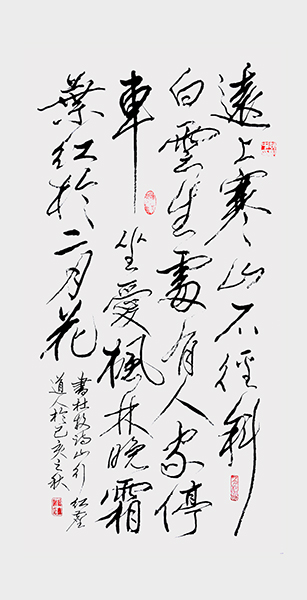 遠上寒山石徑斜
白雲生處有人家停
車坐愛楓林晚霜
葉紅於二月花
書杜牧詩山行 紅
道人於己亥之秋